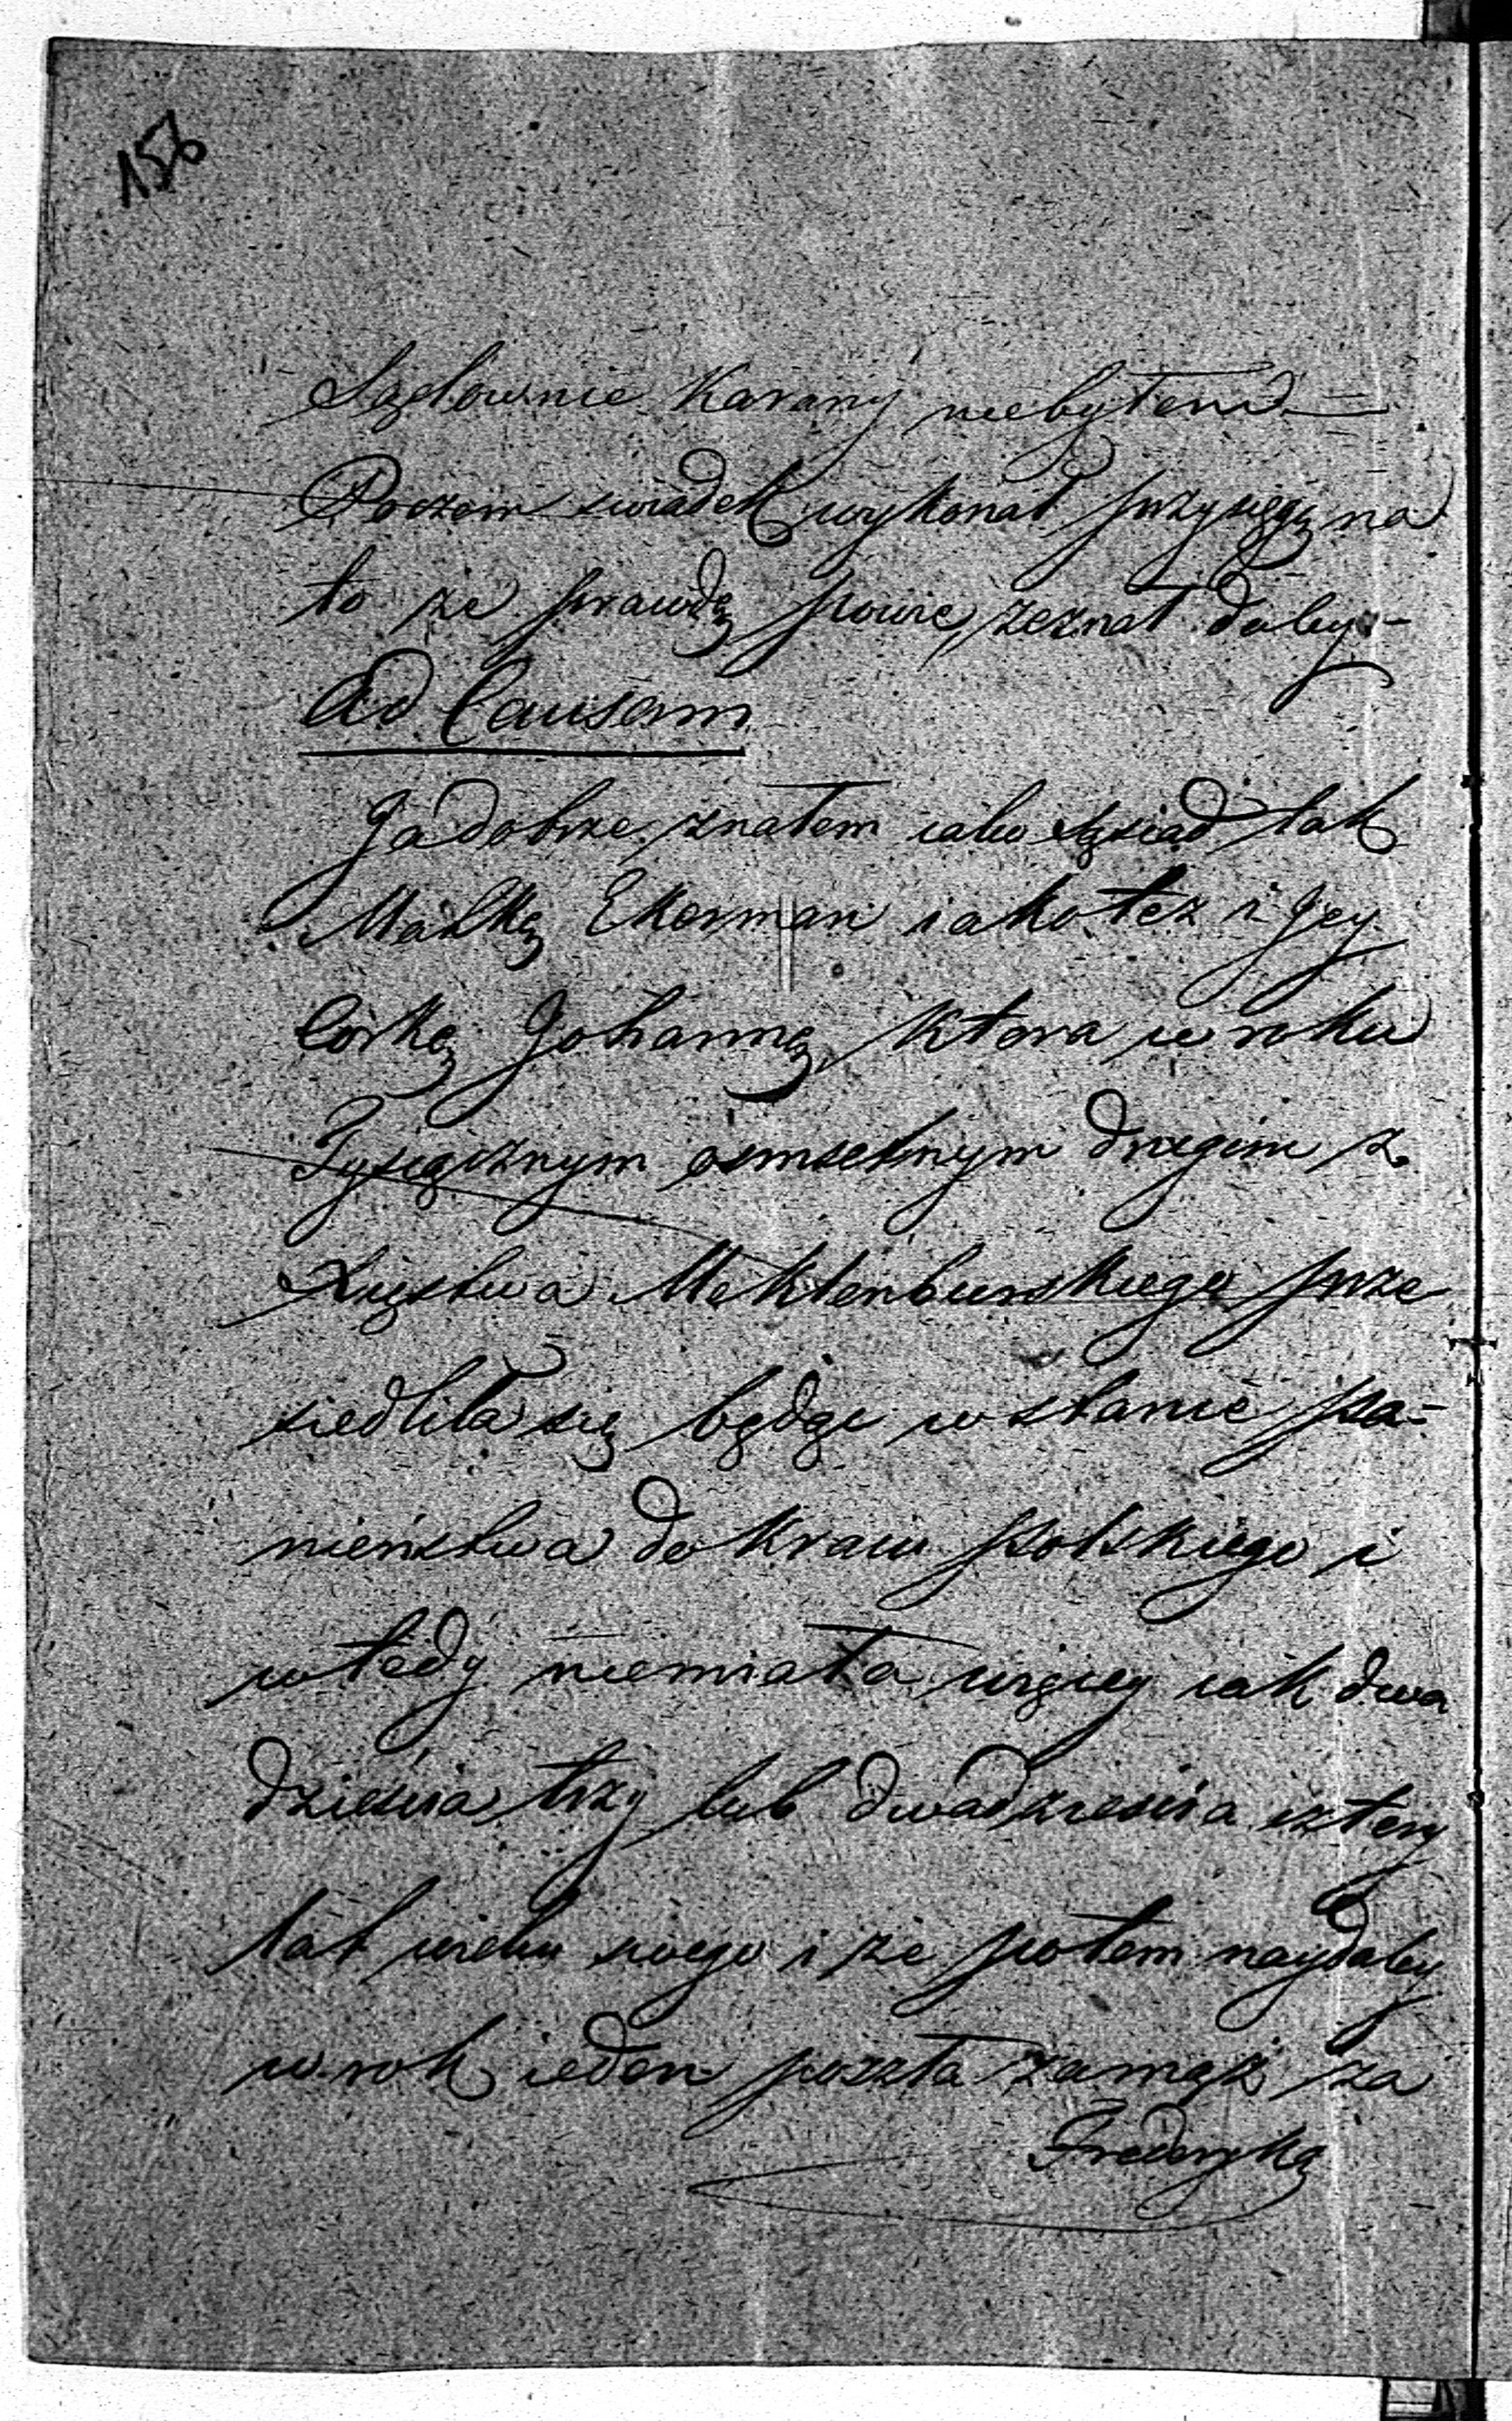 156
Sądownie karany niebyłem —
Poczem swiadek wykonał przysięgę na
to że prawdę powie, zeznał daley -
Ad Causam
Ja dobrze znałem iako sąsiad tak
Matkę Ekerman iako też i Jey
Corkę Johannę, ktora w roku
Tysiącznym osmsetnym drugim z
Xięstwa Meklenburskiego prze
siedliła się będąc w stanie pa-
nieństwa do kraiu polskiego i
wtedy niemiała więcey iak dwa
dzieścia trzy lub dwadzieścia cztery
lat wieku swego i że potem naydaley
w rok ieden poszła zamąż za
Frederyka